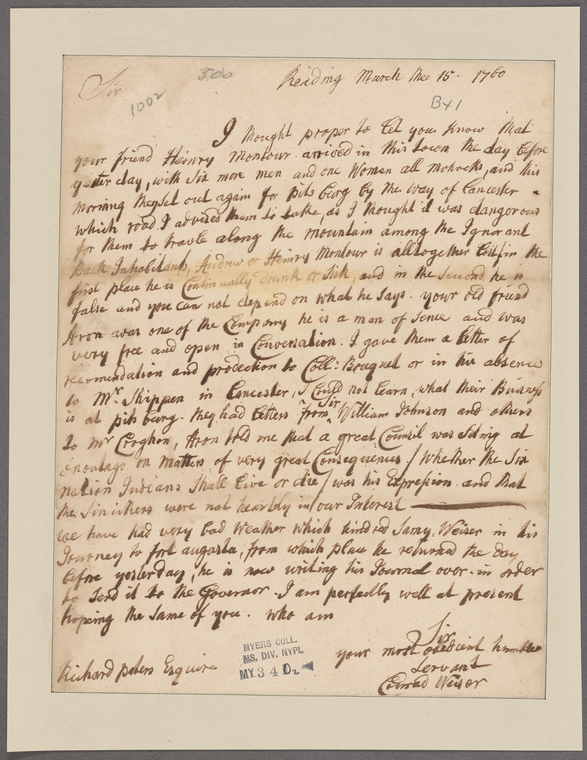 Sir
300
1002
Reiding March the 15. 1760
Bx1
I thought proper to let you know that
your friend Heinry Montour arrived in this town the day before
yesterday, with Six more men and one Women all mohocks, and this
morning they set out again for pits burg by the way of Lancester
which road I advised them to take, as I thought it was dangerous
for them to travle along the mountain among the Ignorant
Back Inhabitants, Andrew or Heinry Montour is alltogether in the
first place he is Continually drunk or Sick, and in the Second he is
false and you can not depend on what he Says. your old friend
Aron was one of the Company he is a man of Sence and was
very free and open in Conversation. I gave them a letter of
recomendation and prodection to Coll: Bouquet or in his absence
to Mr. Shippen in Lancester, I Could not learn, what their Business
is at pits burg. they had letters from Sir William Johnson and others
to mr Croghon, Aron told me that a great Council was Siting at
onontago on matters of very great Consequences / Whether the Six
nation Indians Shall live or die / was his Expression. and that
the were not heartily in our Interest
we have had very bad Weather which hindred Samy. Weiser in his
Journey to fort augusta, from which place he returned the day
before yesterday, he is now writing his Journal over in order
to Send it to the Governor. I am perfectly well at present
hoping the Same of you. who am
Sir
your most obedient humble
Servant
Conrad Weiser
Richard peters Esquire
MYERS COLL.
MS. DIV. NYPL
MY 3402